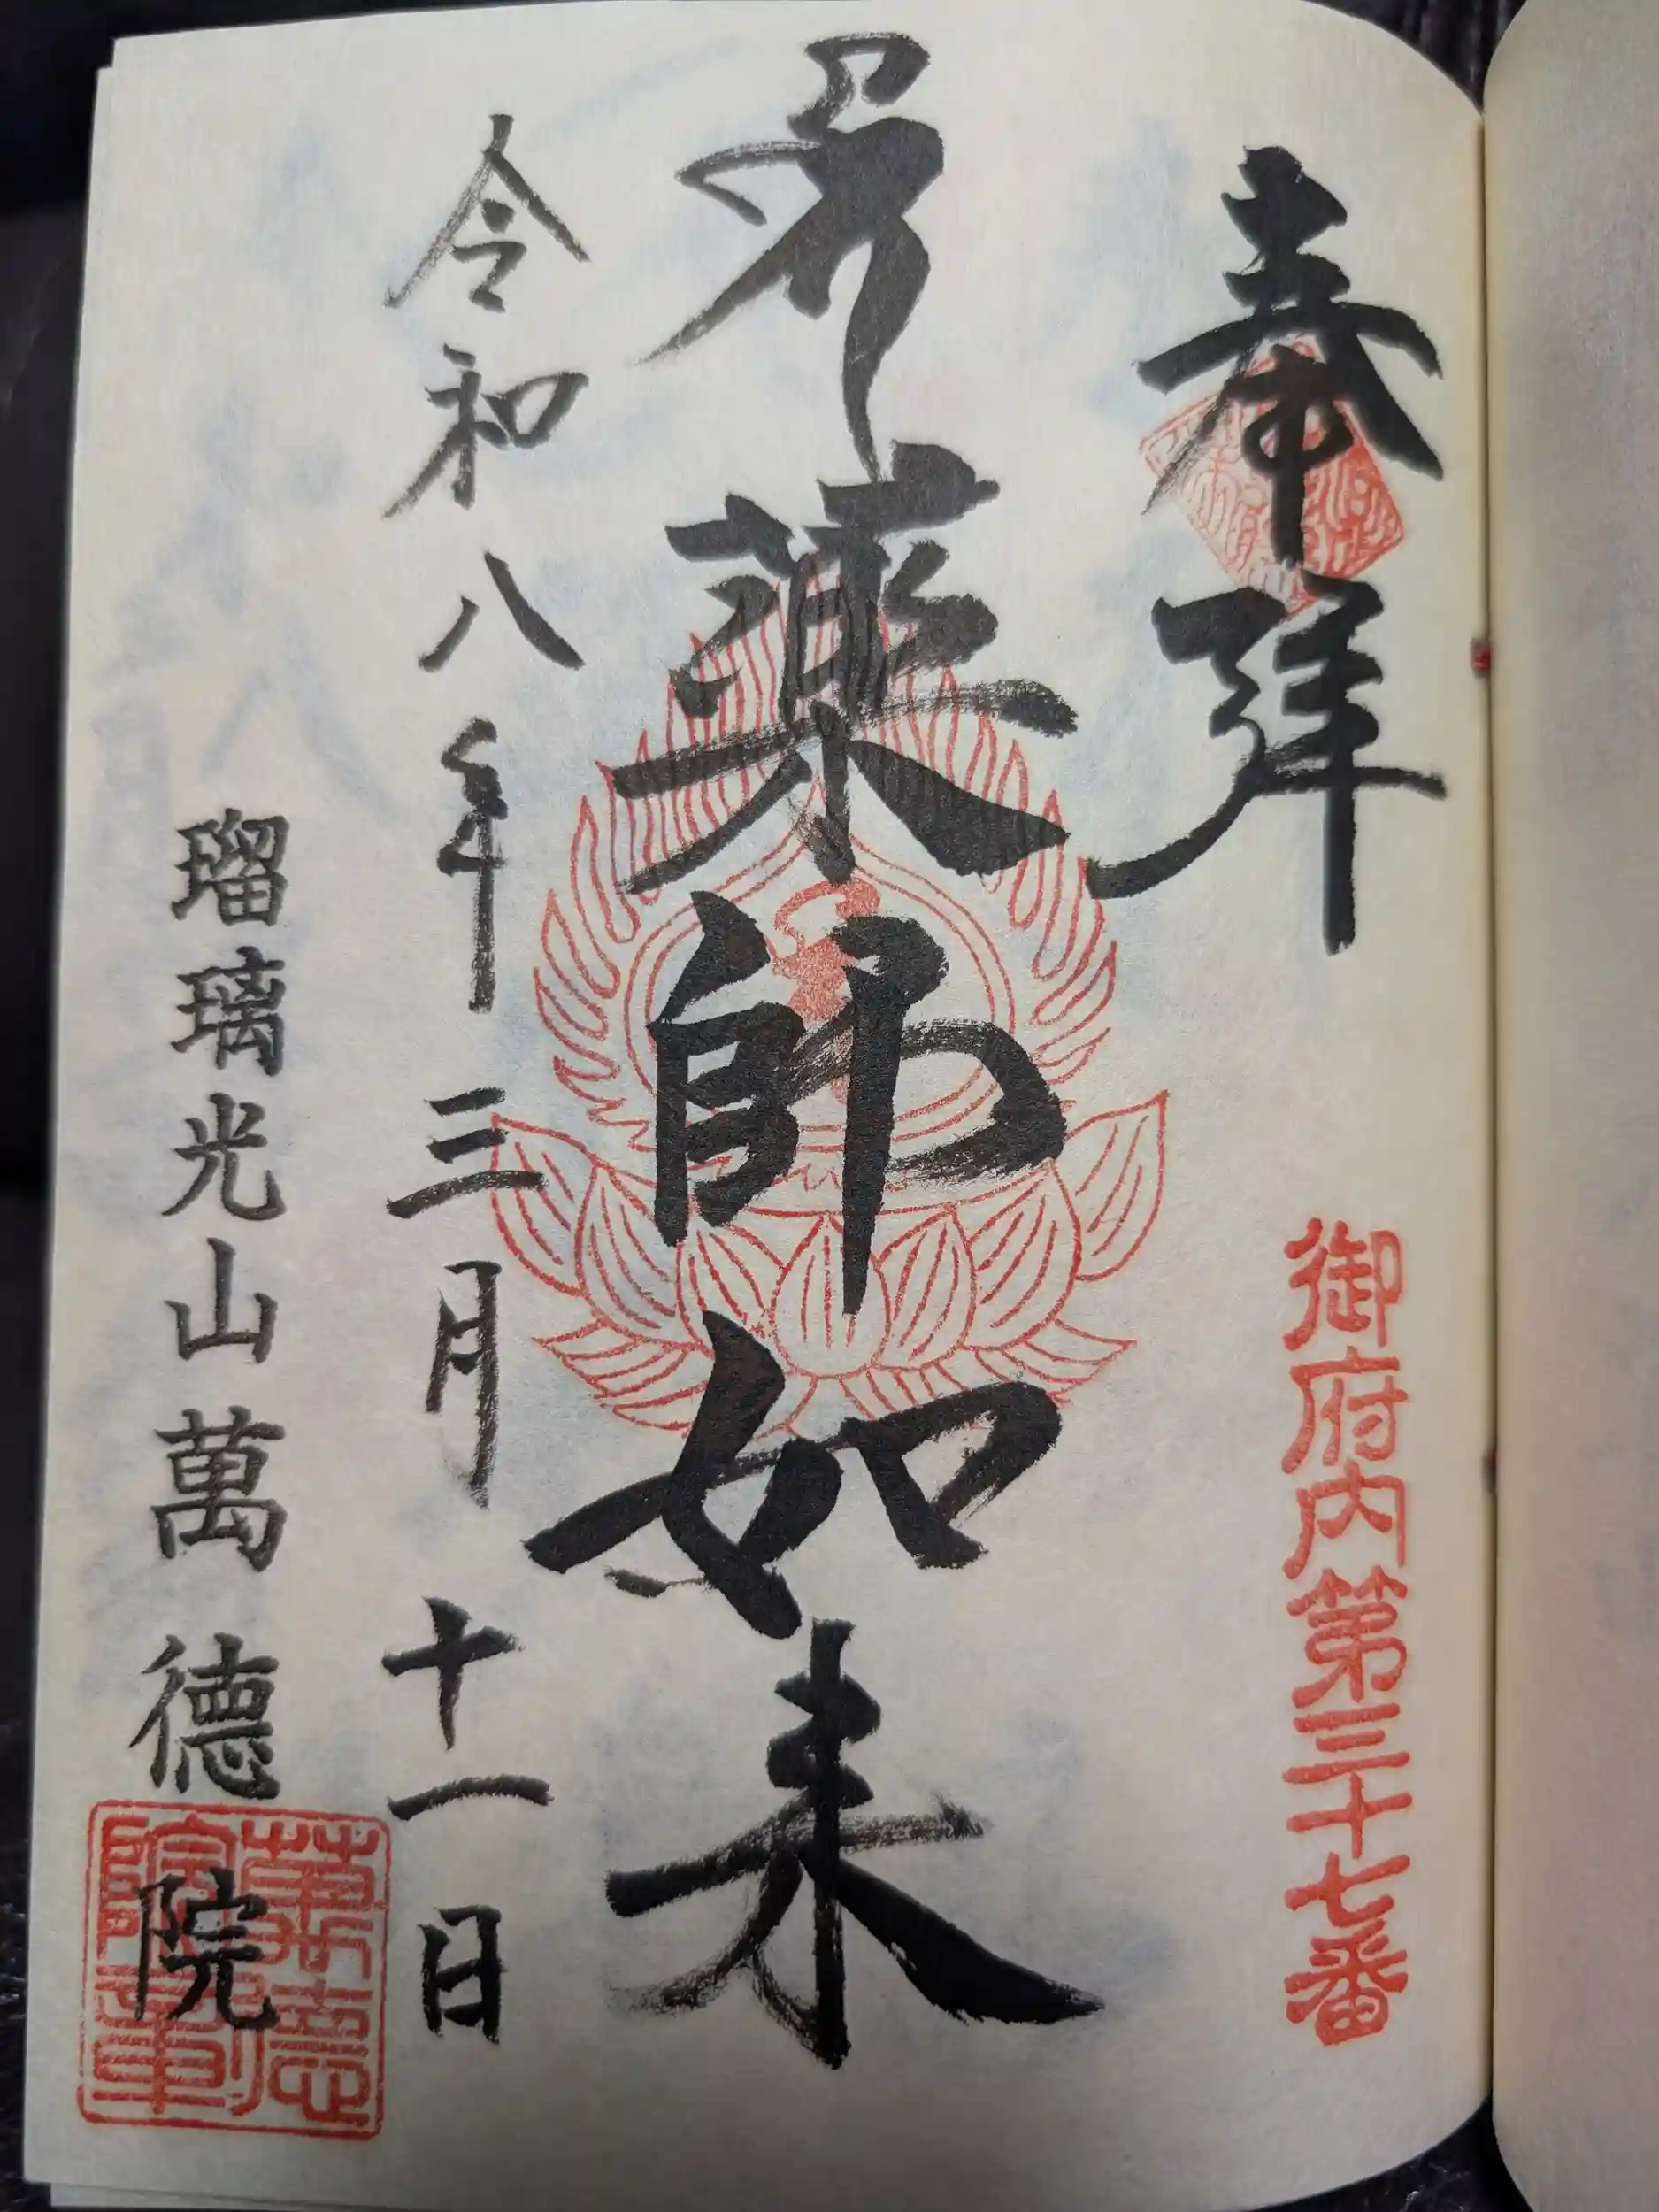 奉拝
御府内第三十七番
薬師如来
令和八年三月十一日
瑠璃光山萬德院